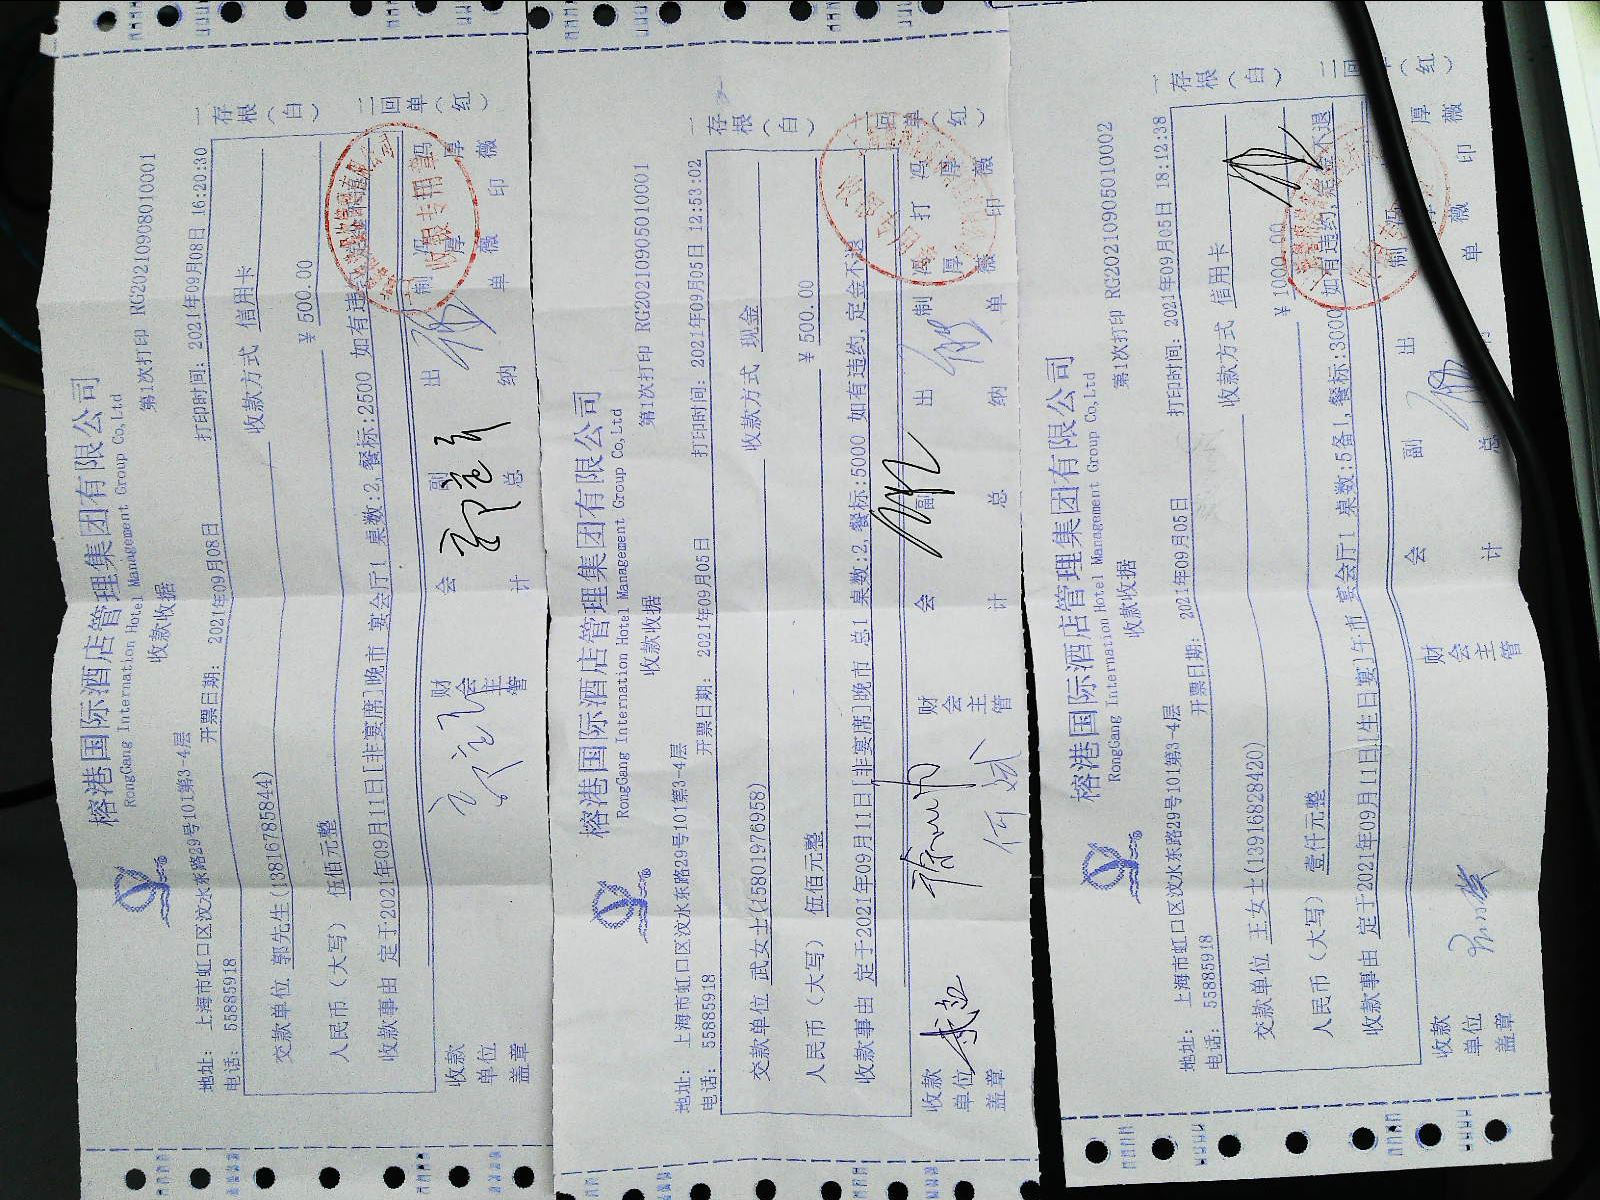 榕港国际酒店管理集团有限公司
RongGang International Hotel Management Group Co,Ltd
收款收据
第1次打印 RG20210908010001
地址: 上海市虹口区汶水东路29号101第3-4层
电话: 55885918
开票日期: 2021年09月08日
打印时间: 2021年09月08日 16:20:30
交款单位 郭先生(13816785844)
收款方式 信用卡
人民币（大写） 伍佰元整
￥500.00
收款事由 定于2021年09月11日[非宴席]晚市 宴会厅1 桌数:2,餐标:2500 如有违
一存根（白）
二回单（红）
收款单位盖章
财会主管
会计
副总
出纳
制单 冯厚薇
打印 冯厚薇
榕港国际酒店管理集团有限公司
RongGang International Hotel Management Group Co,Ltd
收款收据
第1次打印 RG20210905010001
地址: 上海市虹口区汶水东路29号101第3-4层
电话: 55885918
开票日期: 2021年09月05日
打印时间: 2021年09月05日 12:53:02
交款单位 武女士(15801976958)
收款方式 现金
人民币（大写） 伍佰元整
￥500.00
收款事由 定于2021年09月11日[非宴席]晚市 总1 桌数:2,餐标:5000 如有违约,定金不退
一存根（白）
二回单（红）
收款单位盖章
财会主管
会计
副总
出纳
制单 冯厚薇
打印 冯厚薇
榕港国际酒店管理集团有限公司
RongGang International Hotel Management Group Co,Ltd
收款收据
第1次打印 RG20210905010002
地址: 上海市虹口区汶水东路29号101第3-4层
电话: 55885918
开票日期: 2021年09月05日
打印时间: 2021年09月05日 18:12:38
交款单位 王女士(13916828420)
收款方式 信用卡
人民币（大写） 壹仟元整
￥1000.00
收款事由 定于2021年09月11日[生日宴]午市 宴会厅1 桌数:5备1,餐标:3000 如有违约,定金不退
一存根（白）
二回（红）
收款单位盖章
财会主管
会计
副总
出
制单 冯厚薇
印 厚薇